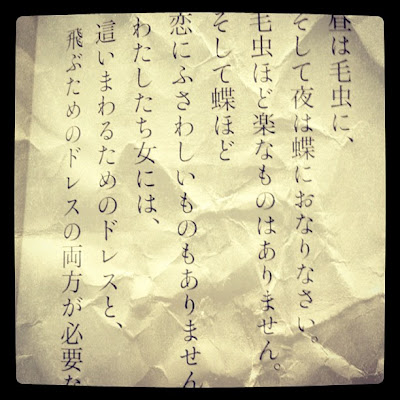 昼は毛虫に、
そして夜は蝶におなりなさい。
毛虫ほど楽なものはありません。
そして蝶ほど
恋にふさわしいものもありません
わたしたち女には、
這いまわるためのドレスと、
飛ぶためのドレスの両方が必要な